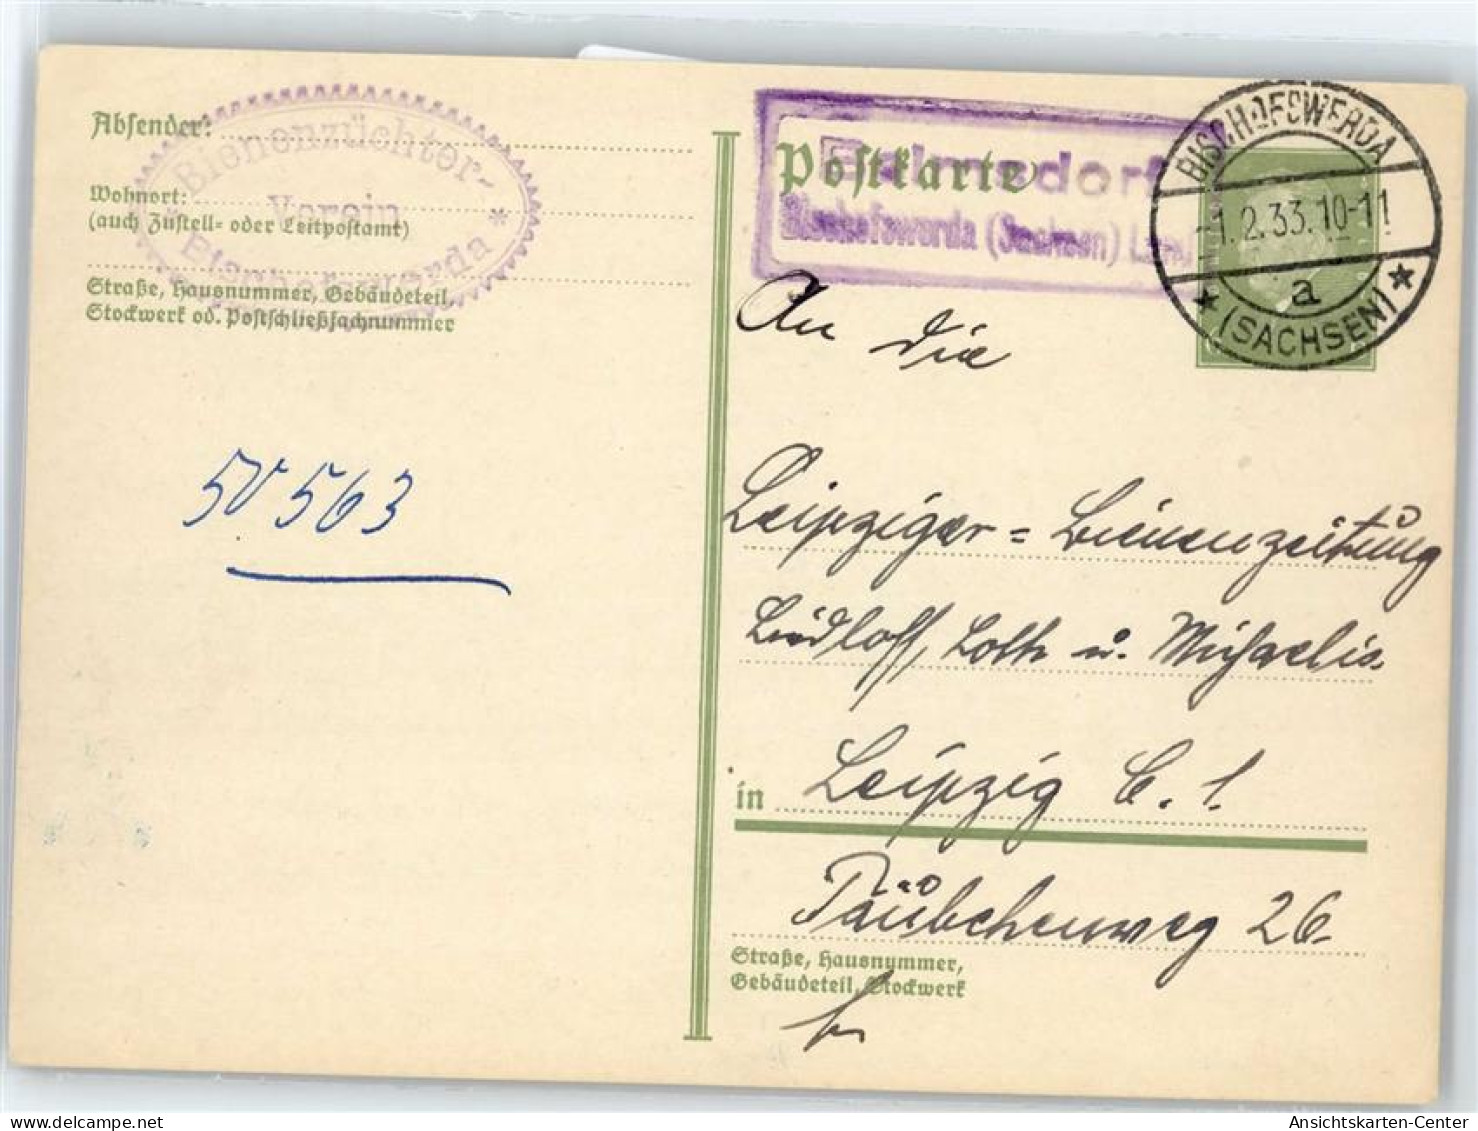 Absender:
Bienenzüchter-
Verein
Bischofswerda
Wohnort:
(auch Zustell- oder Leitpostamt)
Straße, Hausnummer, Gebäudeteil,
Stockwerk od. Postschließfachnummer
563
Postkarte
Bischofswerda (Sachsen) Land
BISCHOFSWERDA
-1.2.33.10-11
a
(SACHSEN)
An die
Leipziger=Bienenzeitung
Liedloff, Loth u. Michaelis
in Leipzig C. 1.
Täubchenweg 26.
Straße, Hausnummer,
Gebäudeteil, Stockwerk
akpool.de
Ansichtskarten-Center